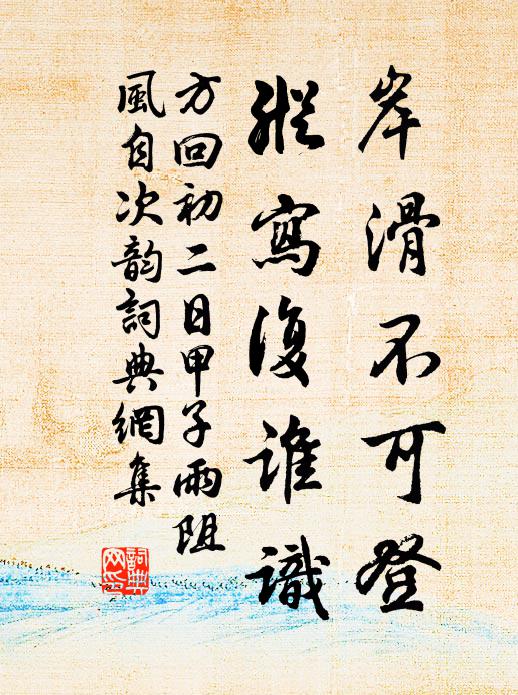 岸滑不可登
縱寫復誰識
方回初二日甲子雨阻
風自次韵詞典網集
詞典網印